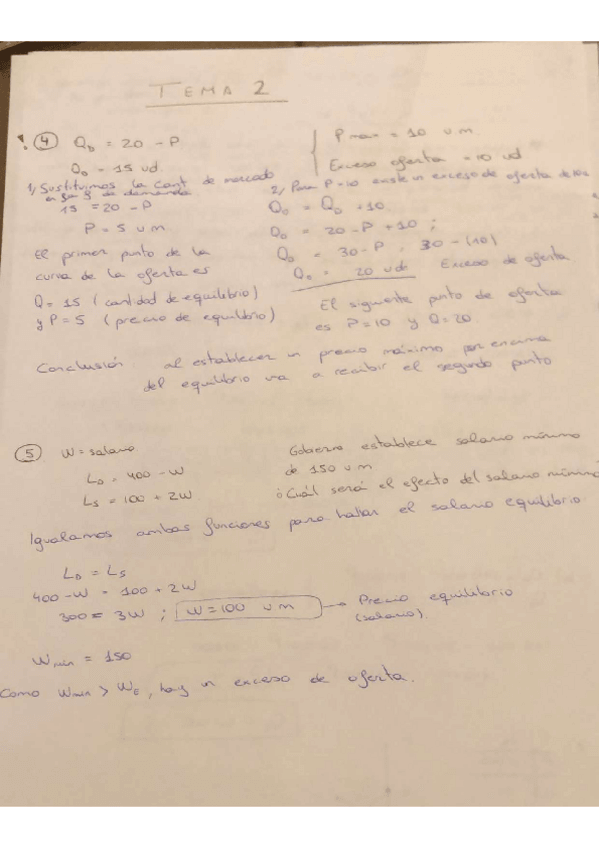 TEMA 2
! 4 Q_D = 20 - P
Q_0 = 15 ud
P max = 10 u m
Exceso oferta = 10 ud
1) Sustituimos la cant de mercado
en la f de demanda
15 = 20 - P
P = 5 u m
El primer punto de la
curva de la oferta es
Q = 15 (cantidad de equilibrio)
y P = 5 (precio de equilibrio)
2) Para P = 10 existe un exceso de oferta de 10u
Q_o = Q_D + 10
Q_o = 20 - P + 10 ;
Q_o = 30 - P , 30 - (10)
Q_o = 20 uds Exceso de oferta
El siguiente punto de oferta
es P = 10 y Q = 20.
Conclusión al establecer un precio máximo por encima
del equilibrio va a recibir el segundo punto
5 W = salario
L_D = 400 - W
L_S = 100 + 2W
Gobierno establece salario mínimo
de 150 u m
¿Cuál será el efecto del salario mínimo?
Igualamos ambas funciones para hallar el salario equilibrio.
L_D = L_S
400 - W = 100 + 2W
300 = 3W ; W = 100 u m → Precio equilibrio
(salario)
W min = 150
Como W min > W_E, hay un exceso de oferta.